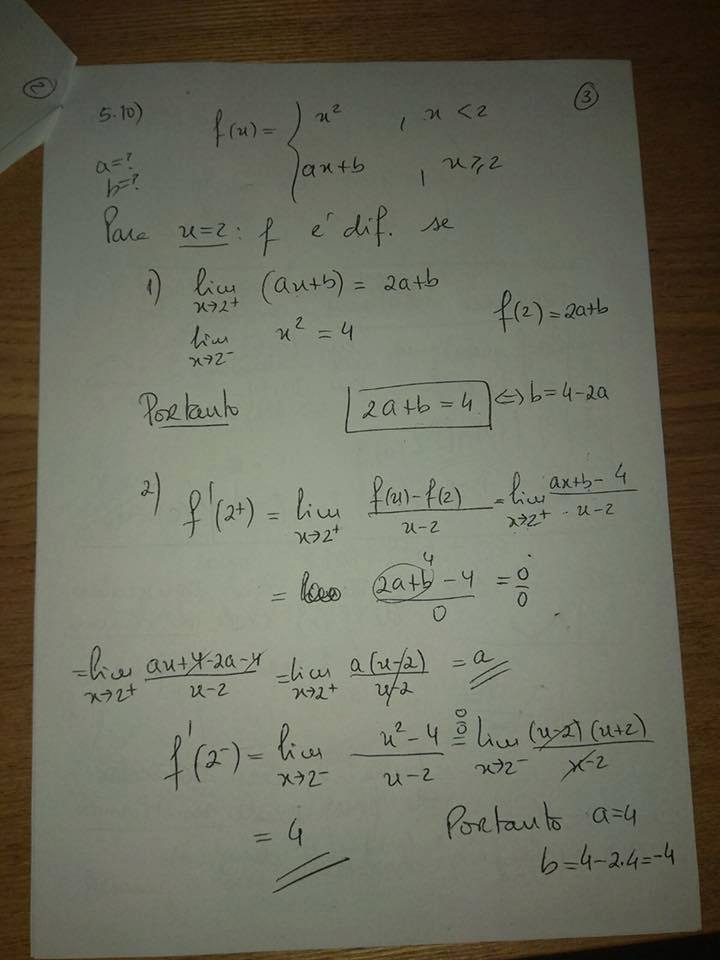 ②
③
5.10) f(x) = { x² , x < 2
a=? { ax+b , x ≥ 2
b=?
Para x=2: f é dif. se
1) lim x→2⁺ (ax+b) = 2a+b
f(2) = 2a+b
lim x→2⁻ x² = 4
Portanto 2a+b = 4 ⇔ b = 4-2a
2) f'(2⁺) = lim x→2⁺ (f(x) - f(2))/(x-2) = lim x→2⁺ (ax+b - 4)/(x-2)
= (2a+b - 4)/0 = 0/0
4
= lim x→2⁺ (ax+4-2a-4)/(x-2) = lim x→2⁺ a(x-2)/(x-2) = a
f'(2⁻) = lim x→2⁻ (x²-4)/(x-2) =(0/0) lim x→2⁻ (x-2)(x+2)/(x-2)
= 4 Portanto a=4
b=4-2·4=-4